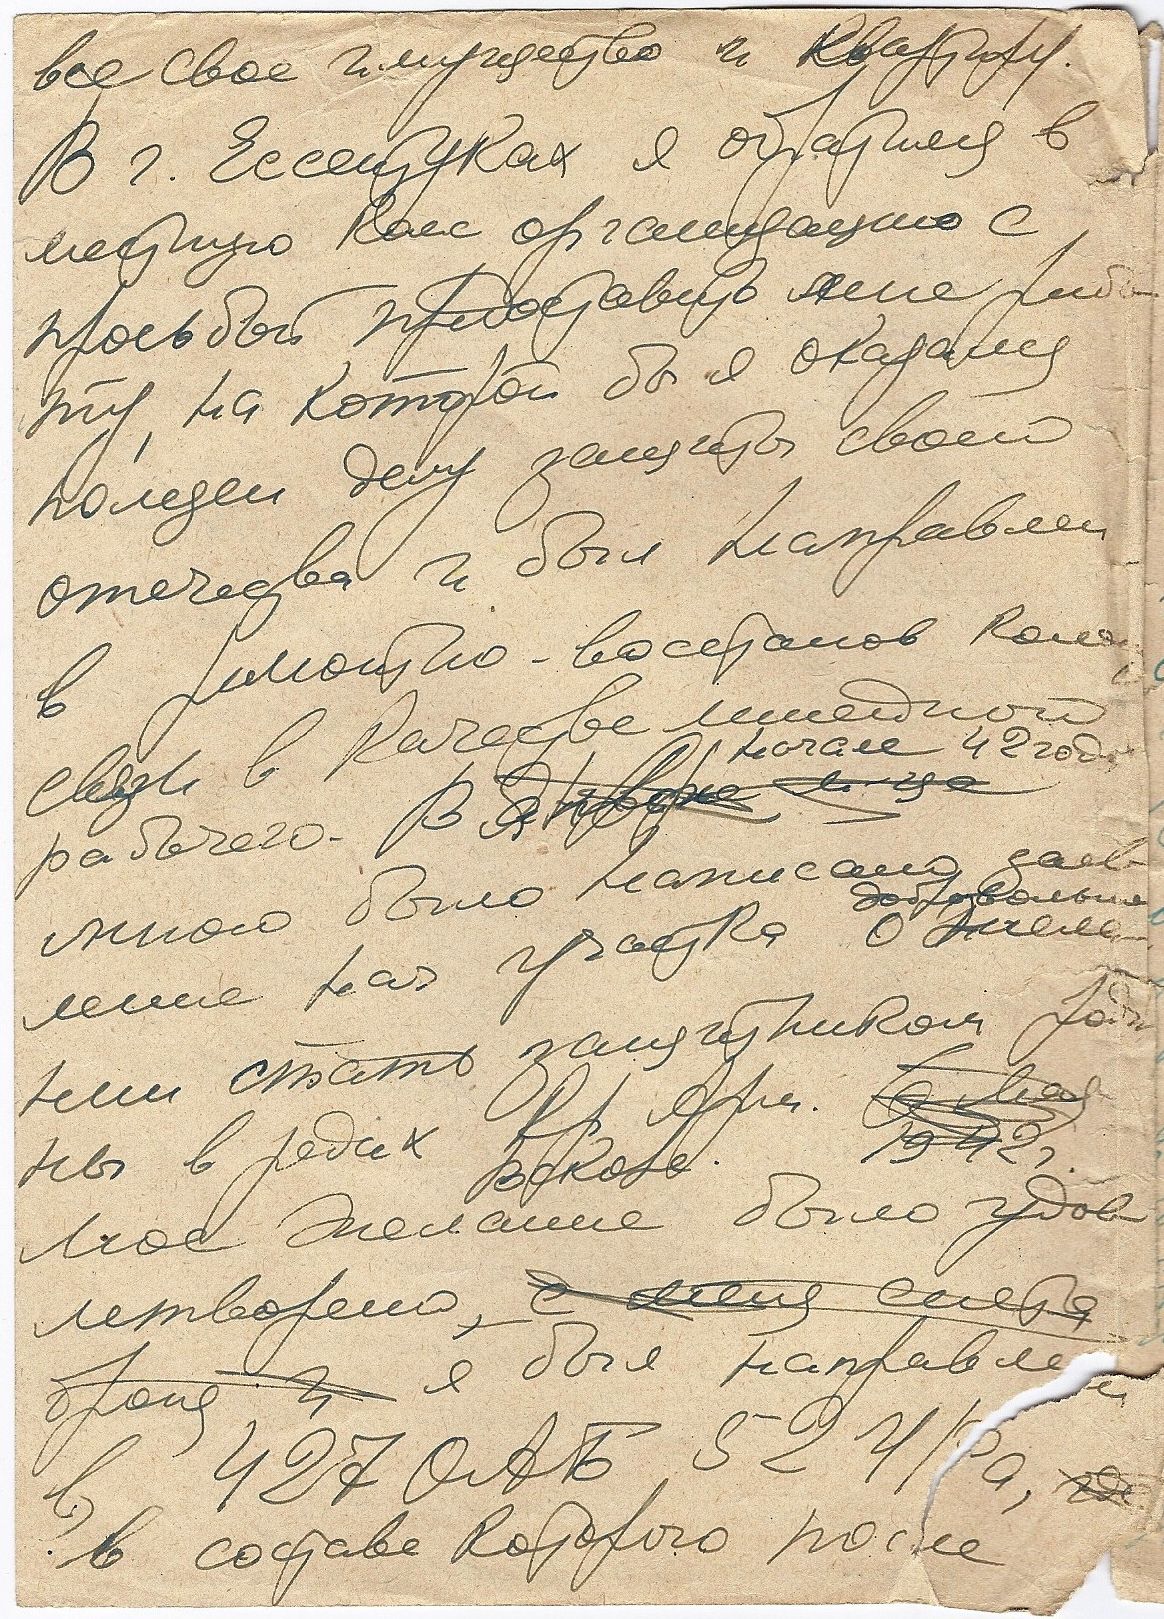 все свое имущество и квартиру.
В г. Ессентуках я обратился в
местную ком организацию с
просьбой предоставить мне рабо
ту, на которой бы я оказался
полезен делу защиты своего
отечества и был направлен
в ремонтно-восстанов колон
связи в качестве линейного
начале 42 года
рабочего. В
мною было написано заяв
добровольном
ление нач участка о желании
нии стать защитником роди
ны в рядах Кр Арм. 6 мая
вскоре. 1942 г.
мое желание было удов
летворено, с меня снята
броня и я был направлен
в 427 ОЛАБ 52 У/Ра, где
в составе которого после